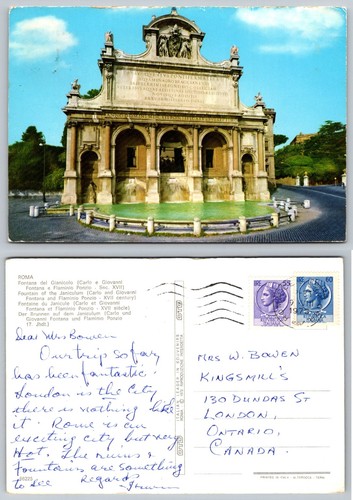 ROMA
Fontana del Gianicolo (Carlo e Giovanni
Fontana e Flaminio Ponzio - Sec. XVII)
Fountain of the Janiculum (Carlo and Giovanni
Fontana and Flaminio Ponzio - XVII century)
Fontaine du Janicule (Carlo et Giovanni
Fontana et Flaminio Ponzio - XVII siècle)
Der Brunnen auf dem Janiculum (Carlo und
Giovanni Fontana und Flaminio Ponzio
17. Jhdt.)
Dear Mrs Bowen
Our trip so far
has been fantastic.
London is the City
there is nothing like
it. Rome is an
exciting city but very
Hot. The ruins &
Fountains are something
to see Regards
MRS W. BOWEN
KINGSMILL'S
130 DUNDAS ST
LONDON,
ONTARIO,
CANADA.